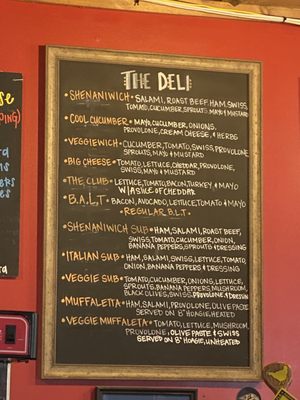 THE DELI
• SHENANIWICH • SALAMI, ROAST BEEF, HAM, SWISS,
TOMATO, CUCUMBER, SPROUTS, MAYO & MUSTARD
• COOL CUCUMBER • MAYO, CUCUMBER, ONIONS,
PROVOLONE, CREAM CHEESE, & HERBS
• VEGGIEWICH • CUCUMBER, TOMATO, SWISS, PROVOLONE
SPROUTS, MAYO & MUSTARD
• BIG CHEESE • TOMATO, LETTUCE, CHEDDAR, PROVOLONE,
SWISS, MAYO & MUSTARD
• THE CLUB • LETTUCE, TOMATO, BACON, TURKEY, & MAYO
W/ A SLICE OF CHEDDAR
• B.A.L.T • BACON, AVOCADO, LETTUCE, TOMATO & MAYO
• REGULAR B.L.T. •
• SHENANIWICH SUB • HAM, SALAMI, ROAST BEEF,
SWISS, TOMATO, CUCUMBER, ONION,
BANANA PEPPERS, SPROUTS & DRESSING
• ITALIAN SUB • HAM, SALAMI, SWISS, LETTUCE, TOMATO,
ONION, BANANA PEPPERS & DRESSING
• VEGGIE SUB • TOMATO, CUCUMBER, ONIONS, LETTUCE,
SPROUTS, BANANA PEPPERS, MUSHROOM,
BLACK OLIVES, SWISS, PROVOLONE & DRESSING
• MUFFALETTA • HAM, SALAMI, PROVOLONE, OLIVE PASTE
SERVED ON 8" HOAGIE, HEATED
• VEGGIE MUFFALETTA • TOMATO, LETTUCE, MUSHROOM,
PROVOLONE, OLIVE PASTE & SWISS
SERVED ON 8" HOAGIE, UNHEATED